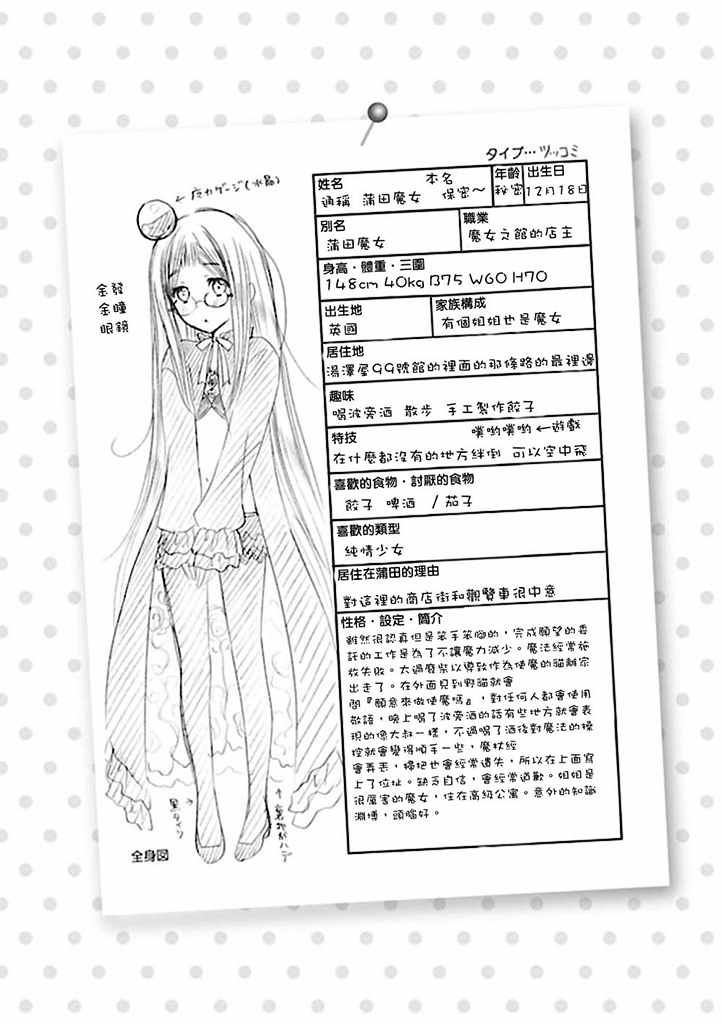 タイプ…ツッコミ
姓名 本名
通稱 蒲田魔女 保密～
年齡
秘密
出生日
12月18日
別名
蒲田魔女
職業
魔女之館的店主
身高・體重・三圍
148cm 40kg B75 W60 H70
出生地
英國
家族構成
有個姐姐也是魔女
居住地
湯澤屋99號館的裡面的那條路的最裡邊
趣味
喝波旁酒 散步 手工製作餃子
特技 噗喲噗喲←遊戲
在什麼都沒有的地方絆倒 可以空中飛
喜歡的食物・討厭的食物
餃子 啤酒 /茄子
喜歡的類型
純情少女
居住在蒲田的理由
對這裡的商店街和觀覽車很中意
性格・設定・簡介
雖然很認真但是笨手笨腳的，完成願望的委
託的工作是為了不讓魔力減少。魔法經常施
放失敗。太過廢柴以導致作為使魔的貓離家
出走了。在外面見到野貓就會
問『願意來做使魔嗎』，對任何人都會使用
敬語，晚上喝了波旁酒的話有些地方就會表
現的像大叔一樣，不過喝了酒後對魔法的操
控就會變得順手一些，魔杖經
會弄丟，掃把也會經常遺失，所以在上面寫
上了位址。缺乏自信，會經常道歉。姐姐是
很厲害的魔女，住在高級公寓。意外的知識
淵博，頭腦好。
←魔力ゲージ(水晶)
金發
金瞳
眼鏡
黒タイツ
→
↑
裏地がハデ
全身図